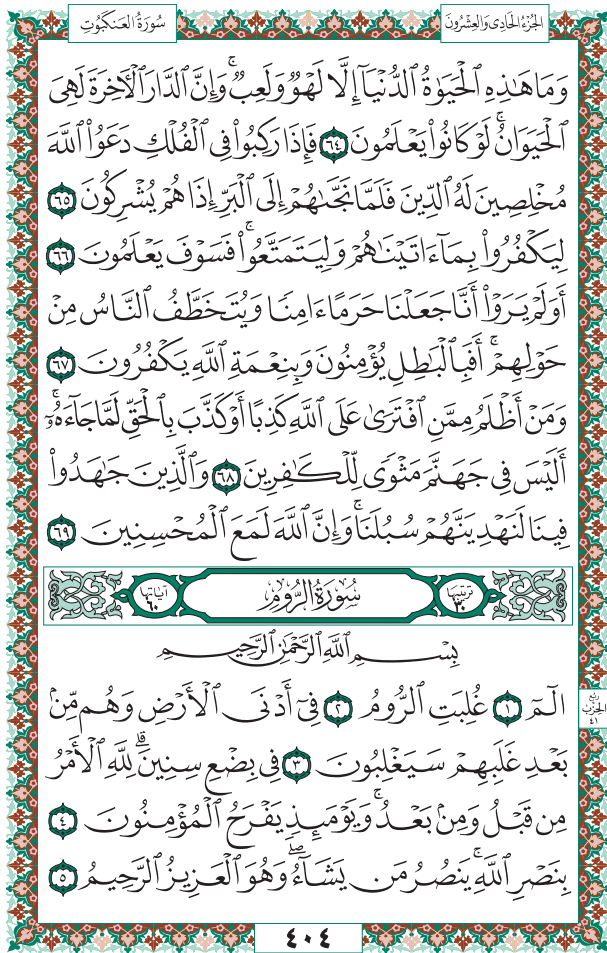 الجُزْءُ الحَادِي وَالعِشْرُونَ
سُورَةُ العَنكَبُوتِ
وَمَا هَٰذِهِ ٱلْحَيَوٰةُ ٱلدُّنْيَآ إِلَّا لَهْوٌ وَلَعِبٌ ۚ وَإِنَّ ٱلدَّارَ ٱلْـَٔاخِرَةَ لَهِىَ
ٱلْحَيَوَانُ ۚ لَوْ كَانُوا۟ يَعْلَمُونَ ٦٤ فَإِذَا رَكِبُوا۟ فِى ٱلْفُلْكِ دَعَوُا۟ ٱللَّهَ
مُخْلِصِينَ لَهُ ٱلدِّينَ فَلَمَّا نَجَّىٰهُمْ إِلَى ٱلْبَرِّ إِذَا هُمْ يُشْرِكُونَ ٦٥
لِيَكْفُرُوا۟ بِمَآ ءَاتَيْنَٰهُمْ وَلِيَتَمَتَّعُوا۟ ۚ فَسَوْفَ يَعْلَمُونَ ٦٦
أَوَلَمْ يَرَوْا۟ أَنَّا جَعَلْنَا حَرَمًا ءَامِنًا وَيُتَخَطَّفُ ٱلنَّاسُ مِنْ
حَوْلِهِمْ ۚ أَفَبِٱلْبَٰطِلِ يُؤْمِنُونَ وَبِنِعْمَةِ ٱللَّهِ يَكْفُرُونَ ٦٧
وَمَنْ أَظْلَمُ مِمَّنِ ٱفْتَرَىٰ عَلَى ٱللَّهِ كَذِبًا أَوْ كَذَّبَ بِٱلْحَقِّ لَمَّا جَآءَهُۥٓ ۚ
أَلَيْسَ فِى جَهَنَّمَ مَثْوًى لِّلْكَٰفِرِينَ ٦٨ وَٱلَّذِينَ جَٰهَدُوا۟
فِينَا لَنَهْدِيَنَّهُمْ سُبُلَنَا ۚ وَإِنَّ ٱللَّهَ لَمَعَ ٱلْمُحْسِنِينَ ٦٩
ترتيبها ٣٠
سُورَةُ الرُّومِ
آياتها ٦٠
بِسْمِ ٱللَّهِ ٱلرَّحْمَٰنِ ٱلرَّحِيمِ
الٓمٓ ١ غُلِبَتِ ٱلرُّومُ ٢ فِىٓ أَدْنَى ٱلْأَرْضِ وَهُم مِّنۢ
بَعْدِ غَلَبِهِمْ سَيَغْلِبُونَ ٣ فِى بِضْعِ سِنِينَ ۗ لِلَّهِ ٱلْأَمْرُ
مِن قَبْلُ وَمِنۢ بَعْدُ ۚ وَيَوْمَئِذٍ يَفْرَحُ ٱلْمُؤْمِنُونَ ٤
بِنَصْرِ ٱللَّهِ ۚ يَنصُرُ مَن يَشَآءُ ۖ وَهُوَ ٱلْعَزِيزُ ٱلرَّحِيمُ ٥
ربع
الحزب
٤١
٤٠٤